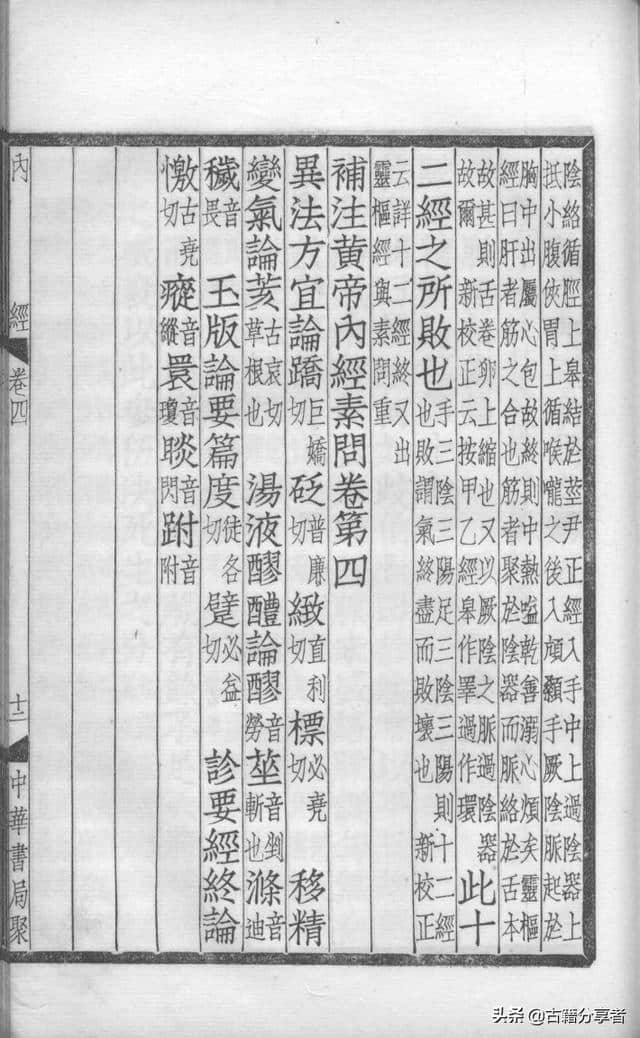 陰絡循脛上睾結於莖尹正經入手中上過陰器上
抵小腹俠胃上循喉嚨之後入頏顙手厥陰脈起於
胸中出屬心包故終則中熱嗌乾善溺心煩矣靈樞
經曰肝者筋之合也筋者聚於陰器而脈絡於舌本
故甚則舌卷卵上縮也又以厥陰之脈過陰器
故爾 新校正云按甲乙經睾作睪過作環
此十
二經之所敗也
手三陰三陽足三陰三陽則十二經
也敗謂氣終盡而敗壞也 新校正
云詳十二經終又出
靈樞經與素問重
補注黃帝內經素問卷第四
異法方宜論蹻巨嬌切 砭普廉切 緻直利切 標必堯切 移精
變氣論荄古哀切草根也 湯液醪醴論醪音勞 莝音剉斬也 滌音迪
穢音畏 玉版論要篇度徒各切 躄必益切 診要經終論
憿古堯切 瘲音縱 睘音瓊 睒音閃 跗音附
內 經 卷四 十二 中華書局聚
头条 @古籍分享者